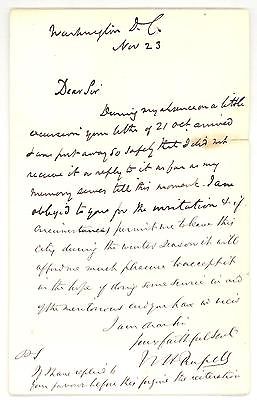 Washington D. C.
Nov 23
Dear Sir
During my absence on a little
excursion your letter of 21 Oct arrived
& was put away so safely that I did not
receive it or reply to it as far as my
memory serves till this moment. I am
obliged to you for the invitation & if
circumstances permit me to leave this
city during the winter season it will
afford me much pleasure to accept it
in the hope of doing some service in aid
of the meritorious you have in view
I am dear Sir
Your faithful Servt
W H Russell
P.S
If I have replied to
your favour before this forgive the iteration